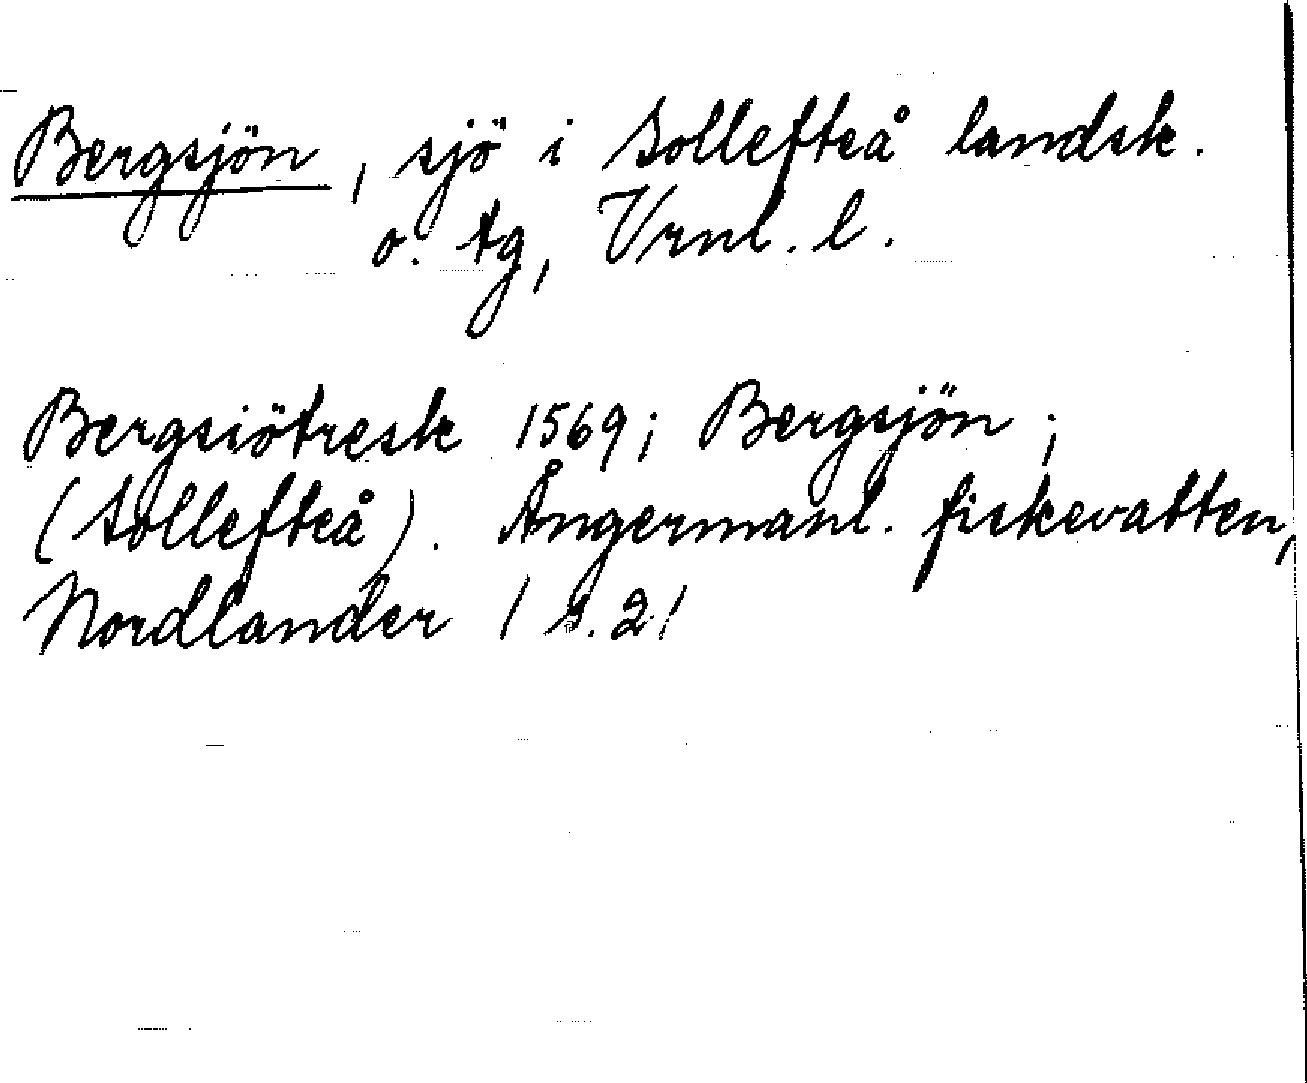 Bergsjön, sjö i Sollefteå landsk.
o. tg, Vrnl. l.
Bergsiötresk 1569; Bergsjön;
(Sollefteå). Ångermanl. fiskevatten,
Nordlander / s. 21